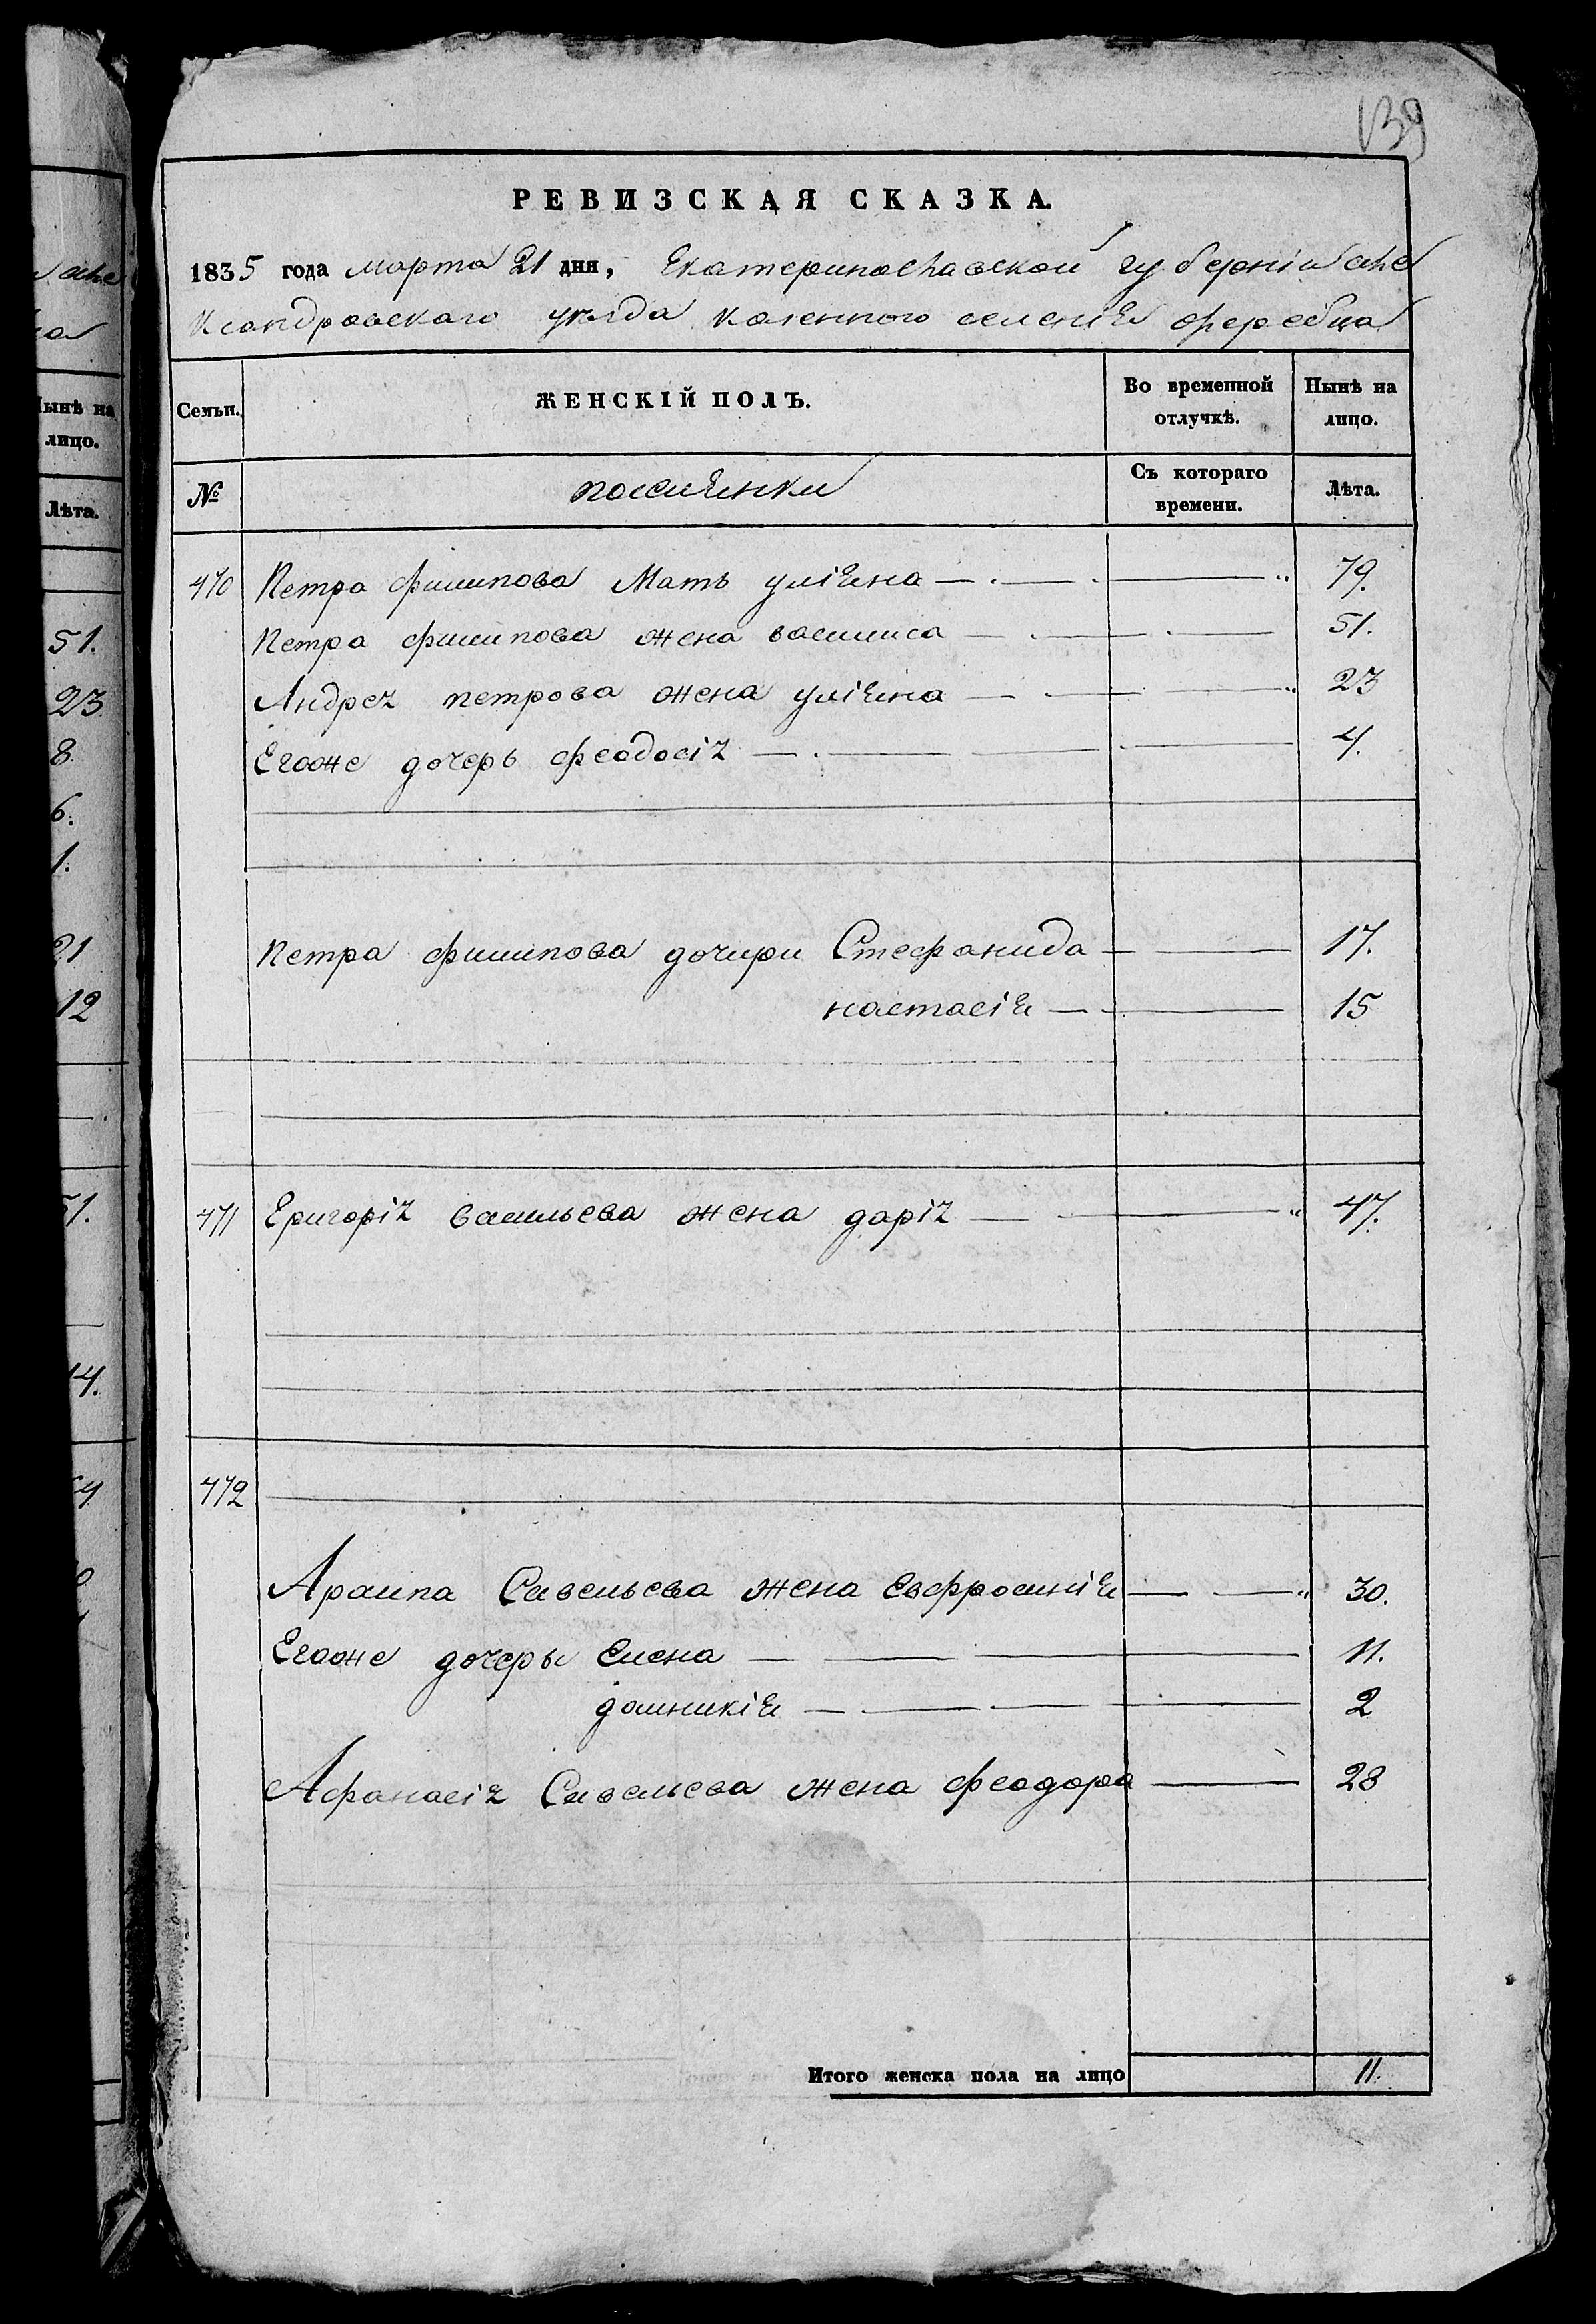 139
РЕВИЗСКАЯ СКАЗКА.
1835 года марта 21 дня, Екатеринославской губерніи але
ксандровскаго уезда казенного селенія
Семьи. ЖЕНСКІЙ ПОЛЪ. Во временной отлучкѣ. Нынѣ на лицо.
№ поселянки Съ котораго времени. Лѣта.
470 Петра филипова Мать уліяна — 79.
Петра филипова жена василиса — 51.
Андрея петрова жена уліяна — 23
Егоже дочерь феодосія — 4.
Петра филипова дочери Стефанида — 17.
настасія — 15
471 Григорія васильева жена дарія — 47.
472
Архипа Савельева жена Евфросинія — 30.
Егоже дочеры Елена — 11.
домникія — 2
Афанасія Савельева жена феодора — 28
Итого женска пола на лицо 11.
але
Нынѣ на
лицо.
Лѣта.
51.
23
8.
6.
1.
21
12
51.
14.